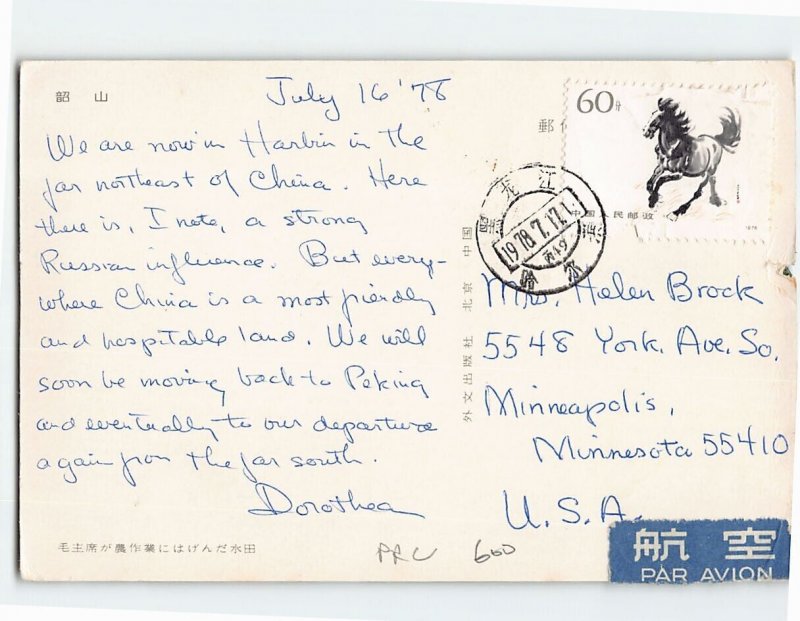 韶 山
July 16 '78
We are now in Harbin in the
far northeast of China. Here
there is, I note, a strong
Russian influence. But every-
where China is a most friendly
and hospitable land. We will
soon be moving back to Peking
and eventually to our departure
again from the far south.
Dorothea
毛主席が農作業にはげんだ水田
PRC 600
外文出版社 北京 中国
郵
60分
中国人民邮政
1978
黑龙江
1978.7.17
哈尔滨
Mrs. Helen Brock
5548 York. Ave. So.
Minneapolis,
Minnesota 55410
U.S.A.
航 空
PAR AVION